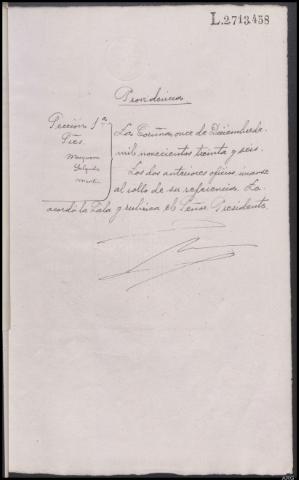 L.2713,458
Providencia
Sección 1ª
Sres.
Marquina
Salgado
Martín
La Coruña, once de Diciembre de
mil novecientos treinta y seis.
Los dos anteriores oficios, únanse
al rollo de su referencia. Lo
acordó la Sala y rubrica el Señor Presidente.
ARG